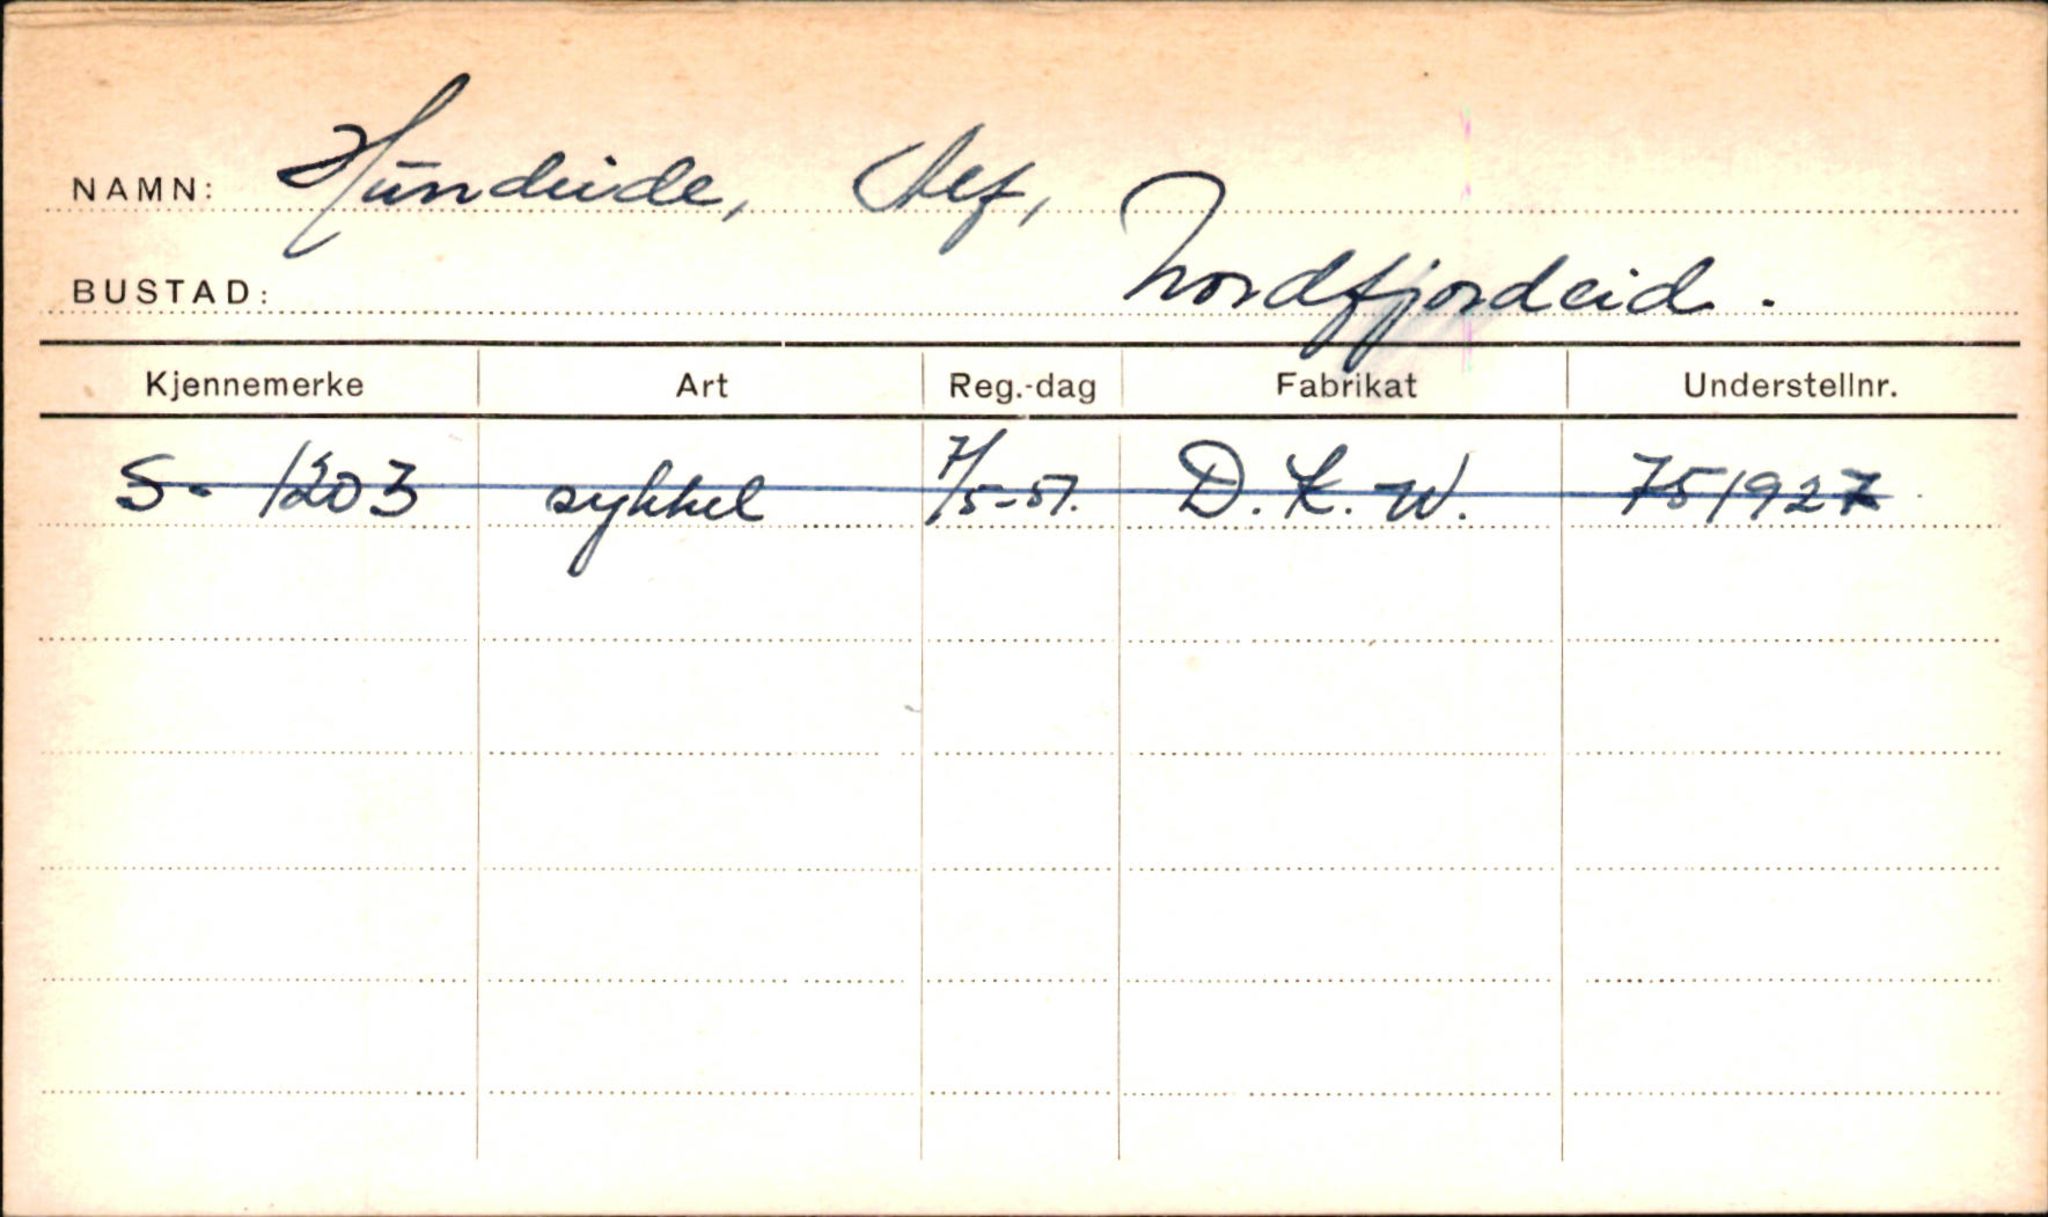 NAMN: Hundeide, Alf,
BUSTAD: Nordfjordeid.
Kjennemerke Art Reg.-dag Fabrikat Understellnr.
S- 1203 sykkel 7/5-57. D.K.W. 751927